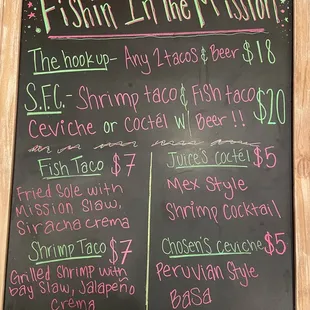 Fishin In the Mission
The hookup- Any 2 tacos & Beer $18
S.F.C. - Shrimp taco & Fish taco $20
Ceviche or Coctél w/ Beer !!
Fish Taco $7
Fried Sole with
Mission Slaw,
Siracha crema
Shrimp Taco $7
Grilled Shrimp with
bay Slaw, Jalapeño
Crema
Juice's coctel $5
Mex Style
Shrimp Cocktail
Chosen's ceviche $5
Peruvian Style
Basa